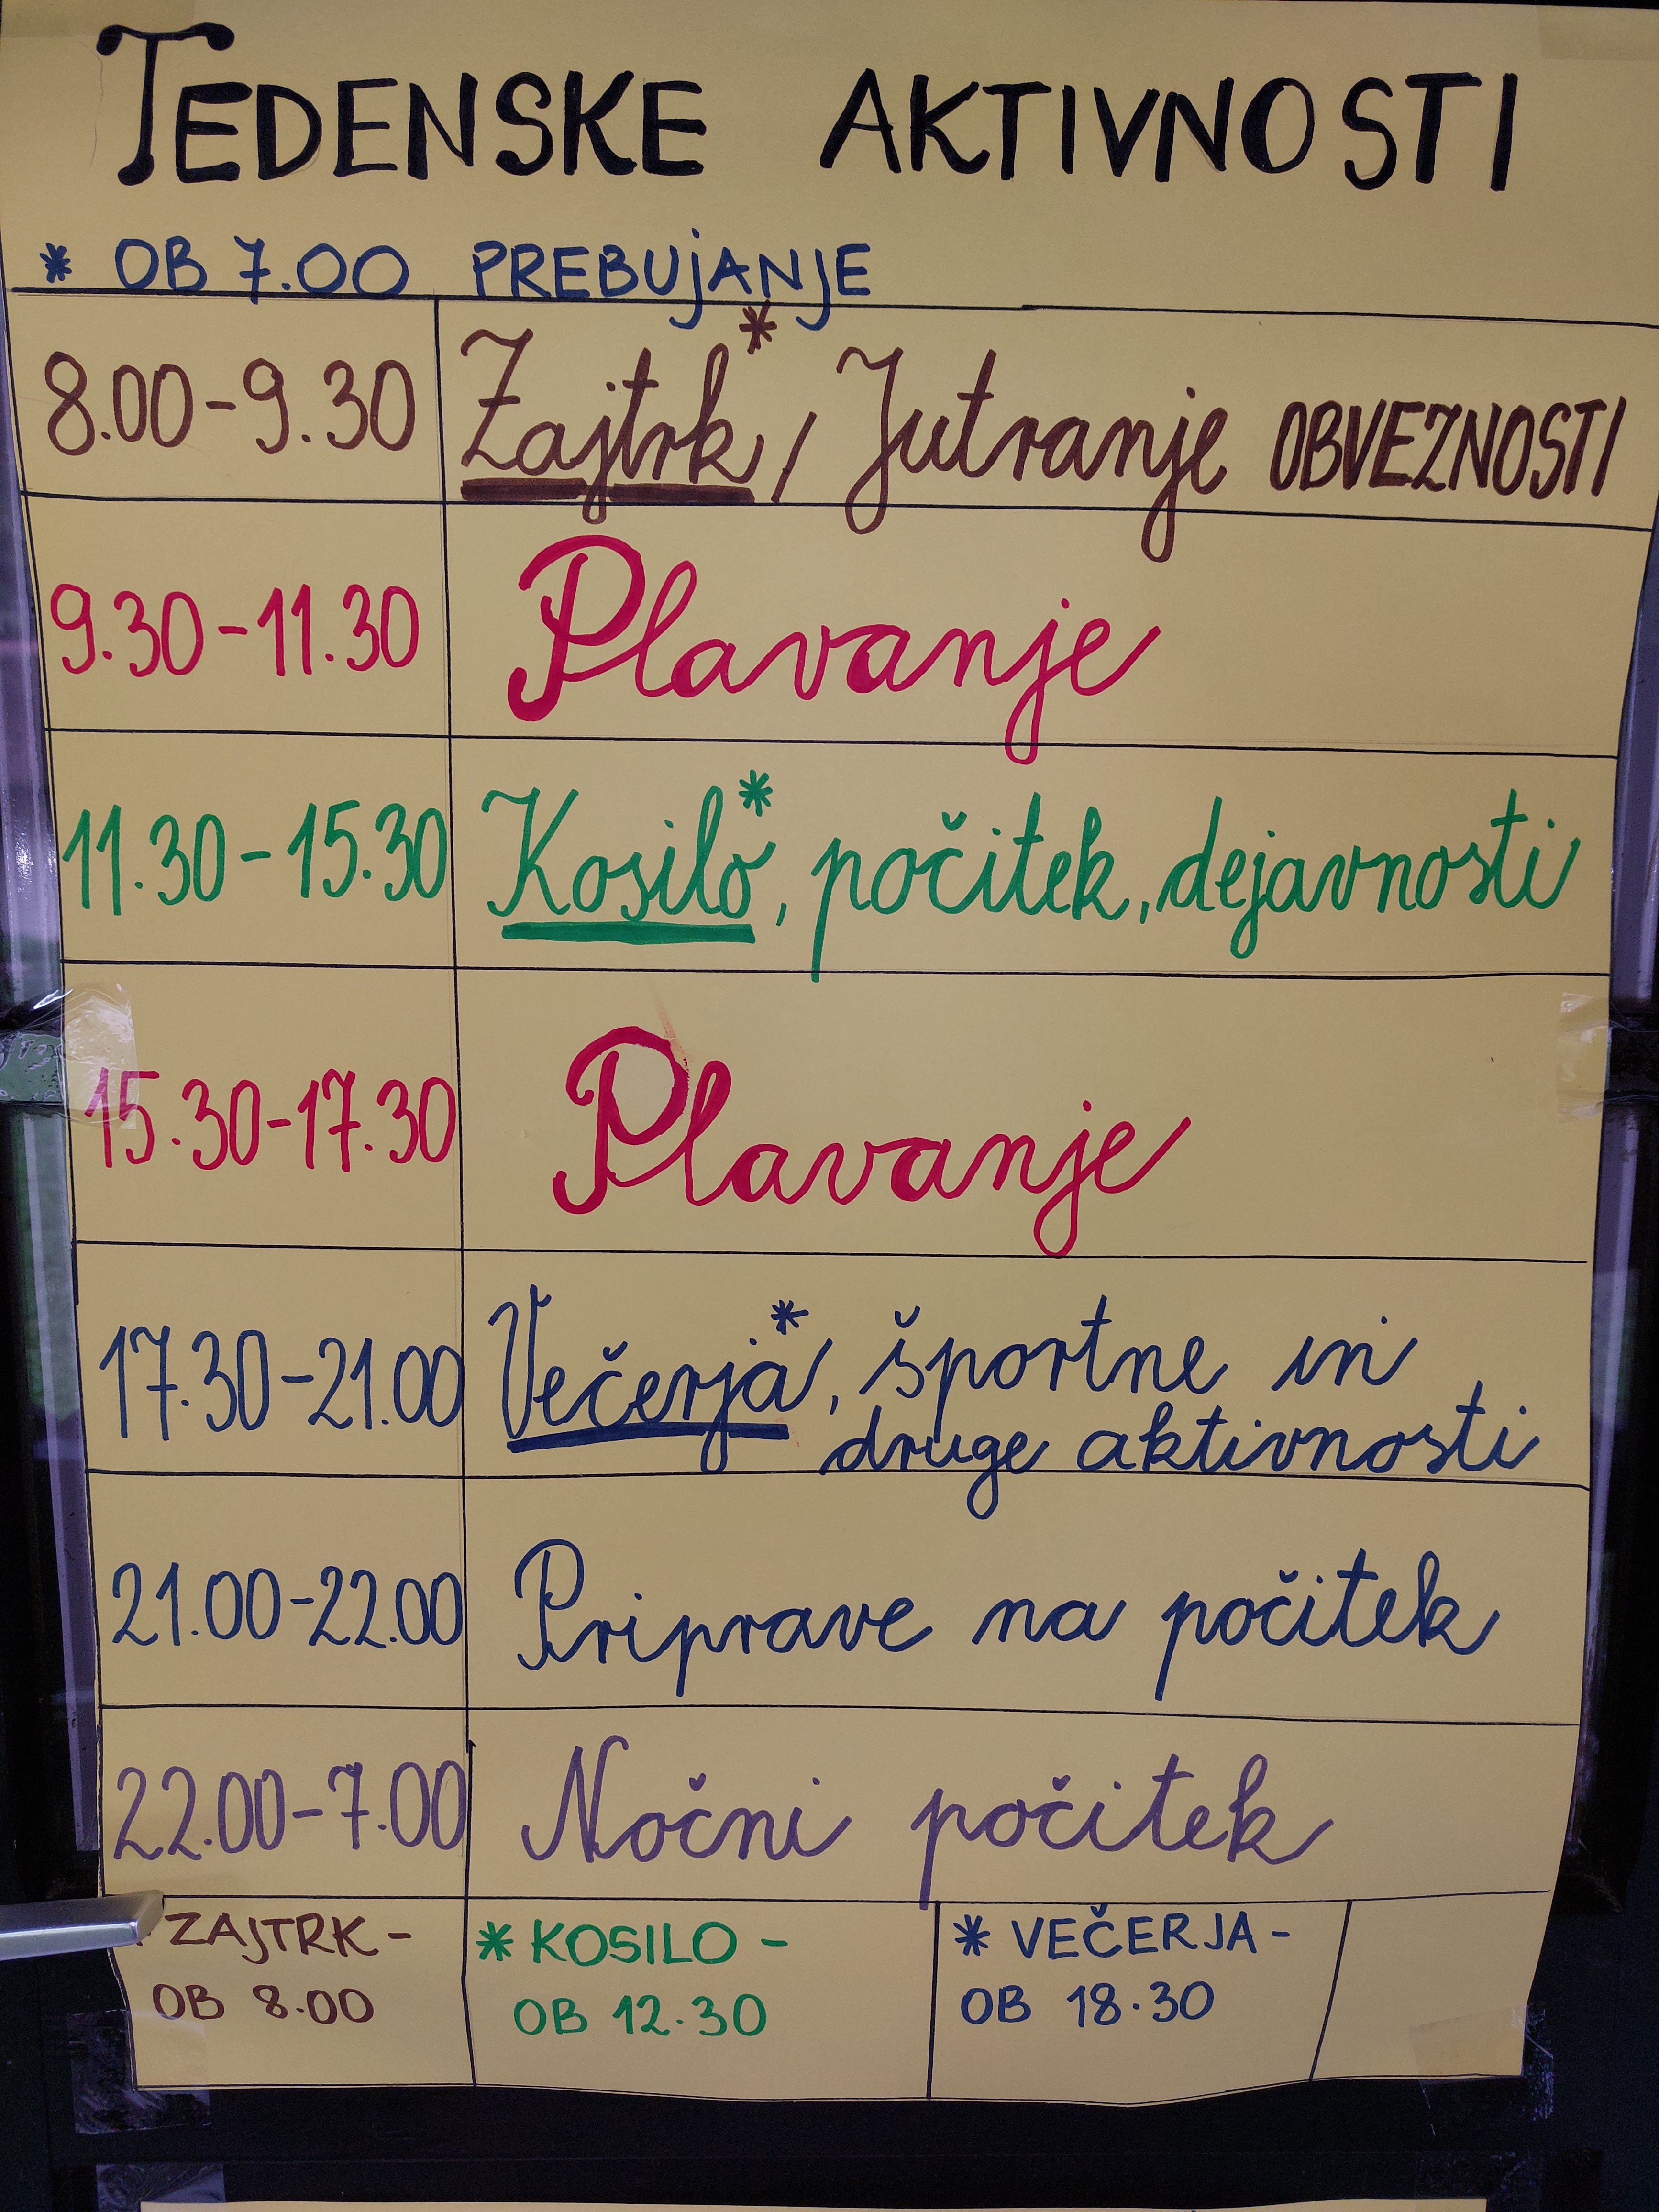 TEDENSKE AKTIVNOSTI
* OB 7.00 PREBUJANJE
8.00-9.30 Zajtrk* / Jutranje OBVEZNOSTI
9.30-11.30 Plavanje
11.30-15.30 Kosilo*, počitek, dejavnosti
15.30-17.30 Plavanje
17.30-21.00 Večerja*, športne in
druge aktivnosti
21.00-22.00 Priprave na počitek
22.00-7.00 Nočni počitek
ZAJTRK -
OB 8.00
* KOSILO -
OB 12.30
* VEČERJA -
OB 18.30